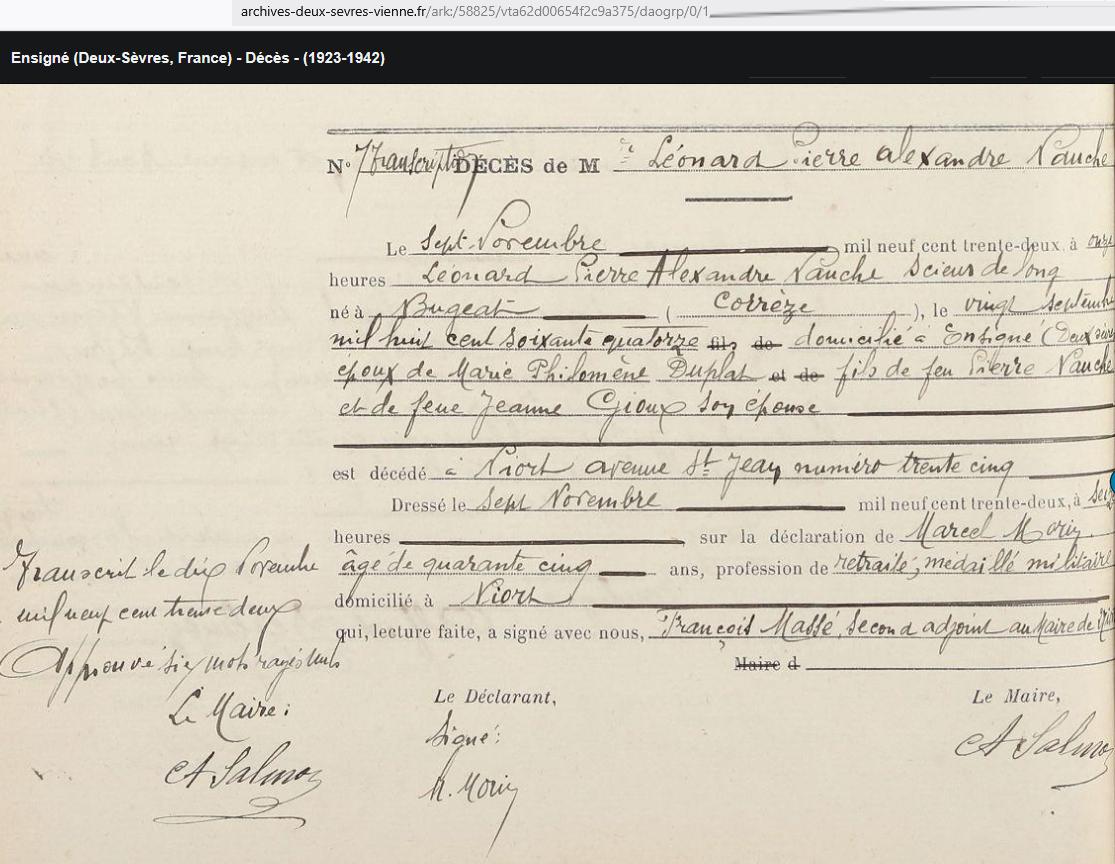 archives-deux-sevres-vienne.fr/ark:/58825/vta62d00654f2c9a375/daogrp/0/1
Ensigné (Deux-Sèvres, France) - Décès - (1923-1942)
N° Transcription DÉCÈS de M Léonard Pierre Alexandre Nauche
Le Sept Novembre mil neuf cent trente-deux, à onze
heures Léonard Pierre Alexandre Nauche Scieur de long
né à Bugeat ( Corrèze ), le vingt septembre
mil huit cent soixante quatorze fils de domicilié à Ensigné (Deux Sèvres
époux de Marie Philomène Duplat et de fils de feu Pierre Nauche
et de feue Jeanne Gioux son épouse
est décédé à Niort avenue St Jean numéro trente cinq
Dressé le Sept Novembre mil neuf cent trente-deux, à
heures sur la déclaration de Marcel Morin
âgé de quarante cinq ans, profession de retraité, médaillé militaire
domicilié à Niort
qui, lecture faite, a signé avec nous, François Massé, Second adjoint au Maire de Niort
Maire d
Transcrit le dix Novembre
mil neuf cent trente deux
Approuvé six mots rayés nuls
Le Maire :
Le Déclarant,
Signé :
M. Morin
Le Maire,